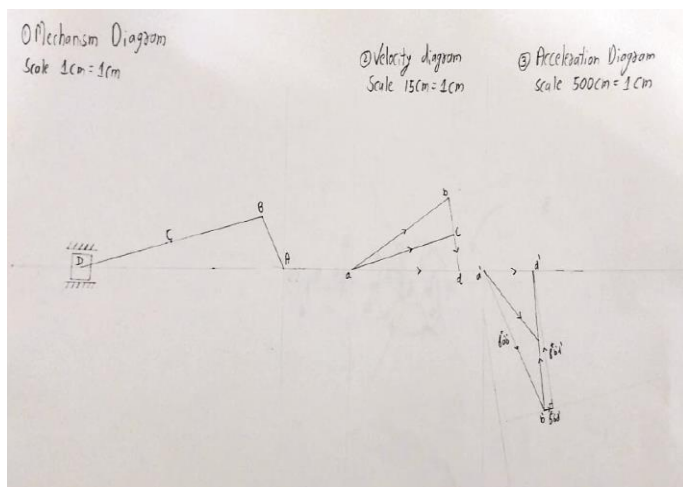 ① Mechanism Diagram
Scale 1cm = 1cm
② Velocity diagram
Scale 15cm = 1cm
③ Acceleration Diagram
scale 500cm = 1cm
D
C
B
A
a
b
c
d
a'
d'
b'